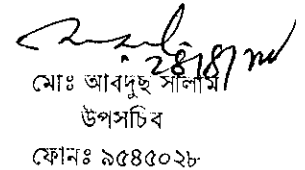 মোঃ আবদুছ সালাম
উপসচিব
ফোনঃ ৯৫৪৫০২৮